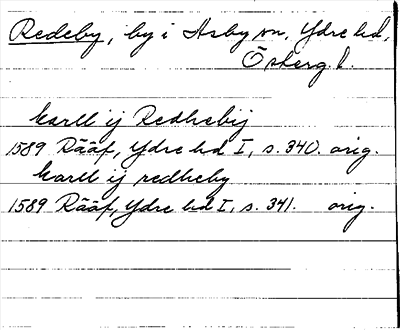 Redeby, by i Asby sn, Ydre hd,
Österg. l.
Karll ij Redhebij
1589 Rääf, Ydre hd I, s. 340. orig.
Karll ij redheby
1589 Rääf, Ydre hd I, s. 341. orig.